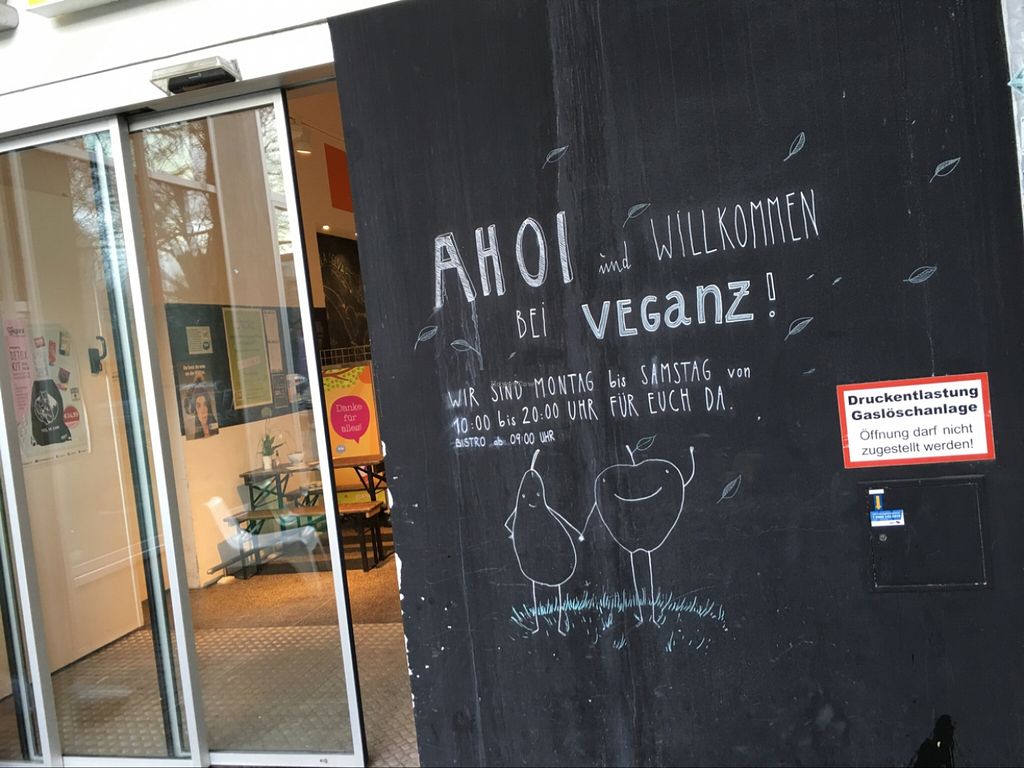 AHOI und WILLKOMMEN
BEI VEGANZ!
WIR SIND MONTAG bis SAMSTAG von
10:00 bis 20:00 UHR FÜR EUCH DA.
BISTRO ab 09:00 UHR
Druckentlastung
Gaslöschanlage
Öffnung darf nicht
zugestellt werden!
Danke
für
alles!
DETOX
KIT